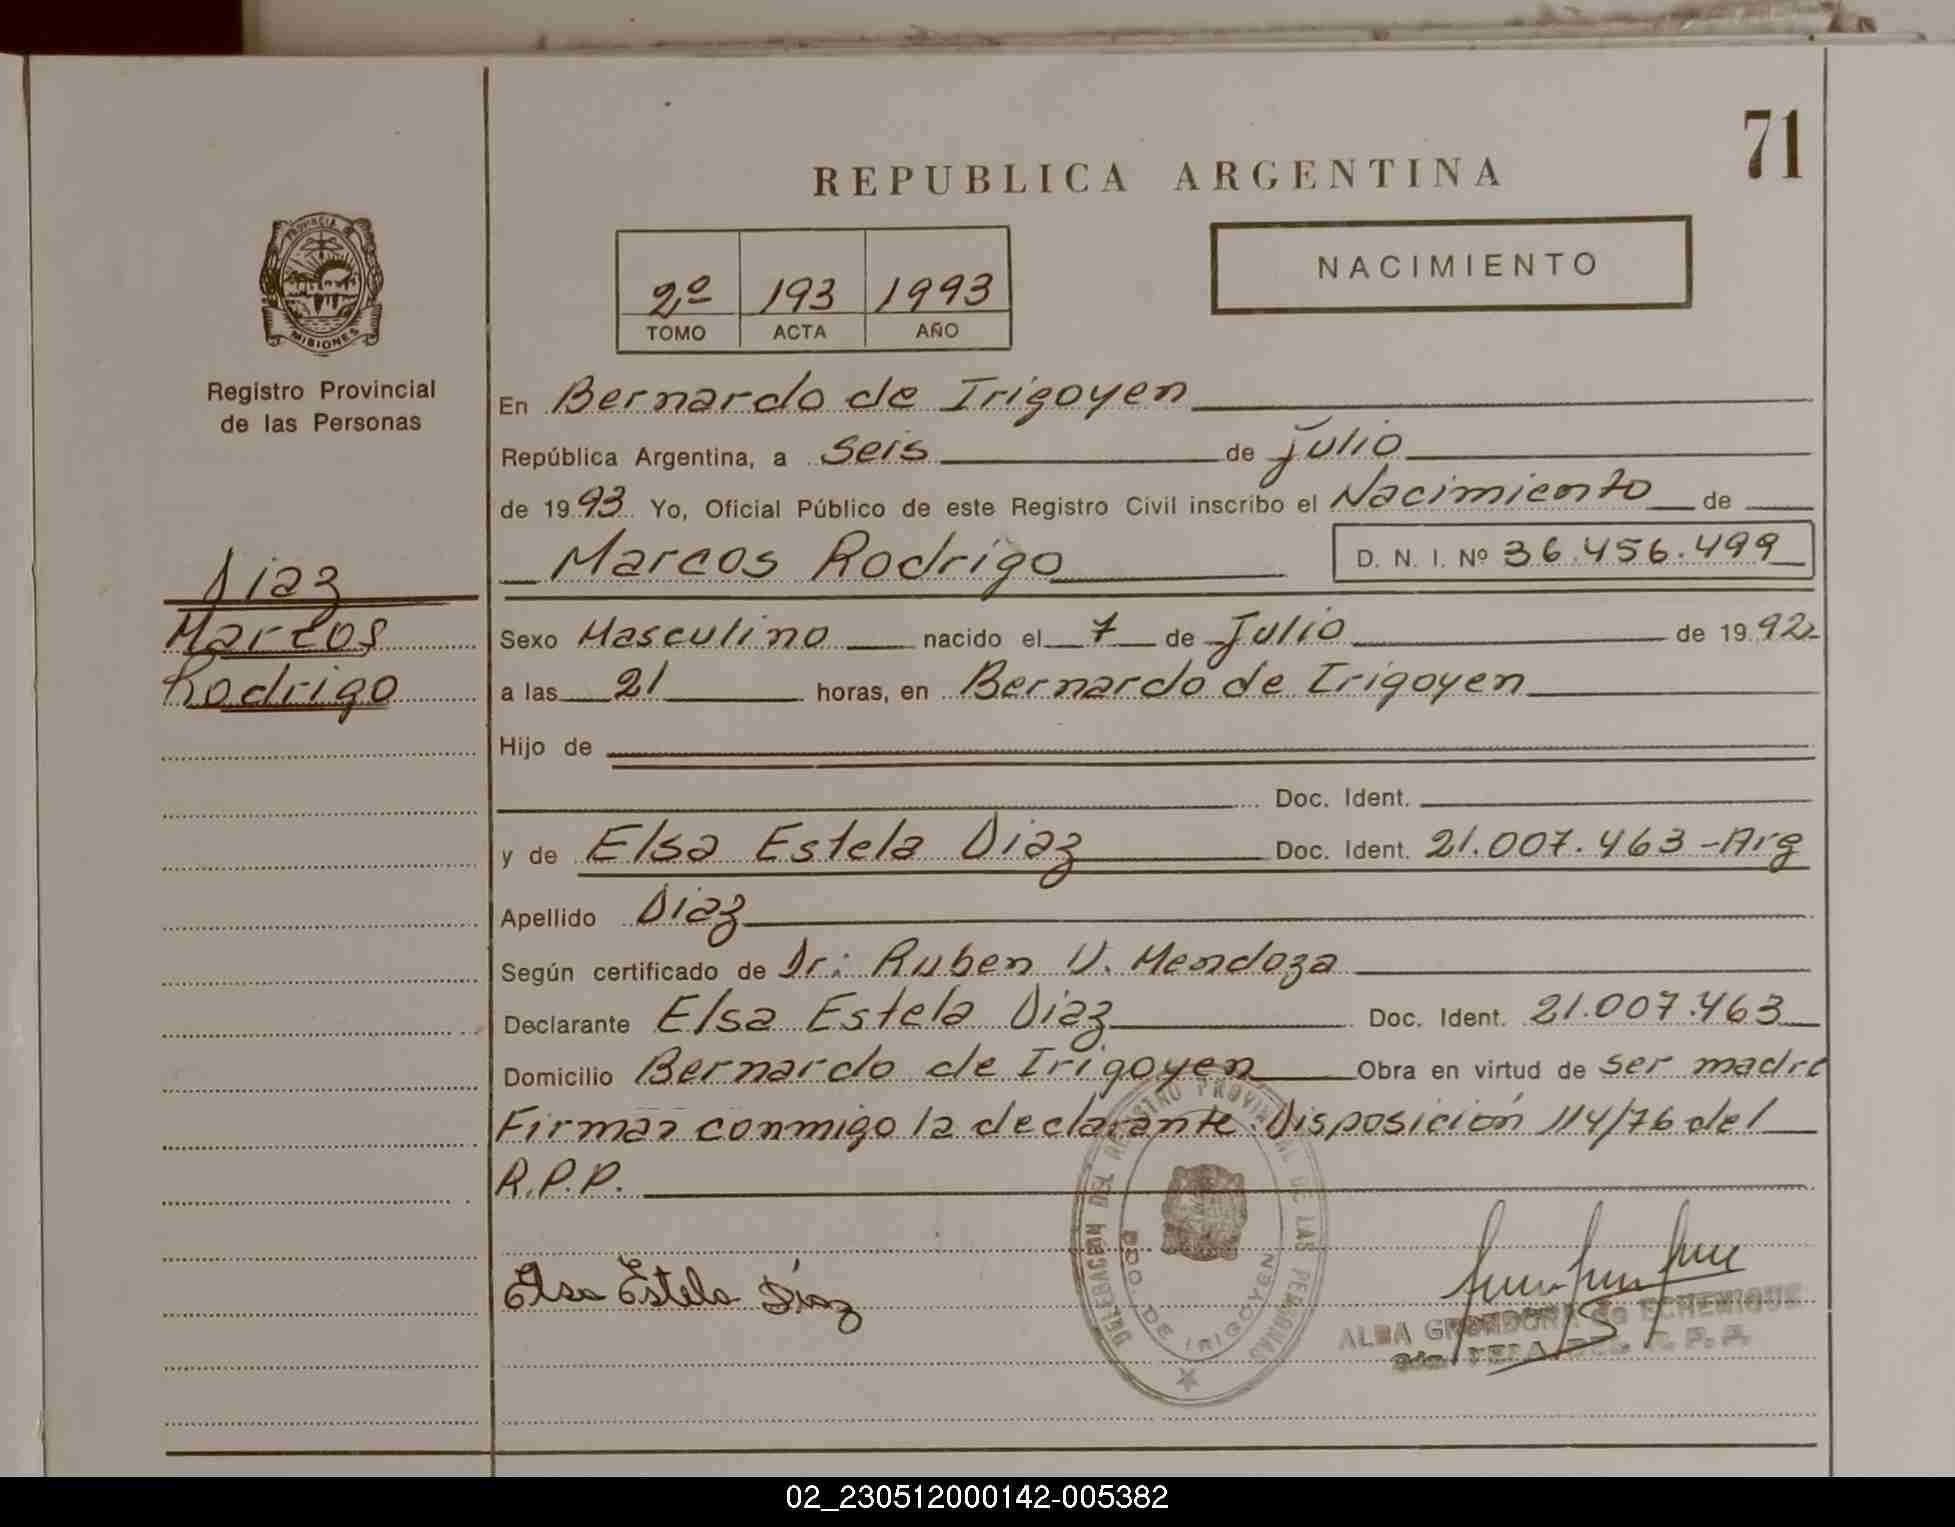 71
REPUBLICA ARGENTINA
PROVINCIA DE
MISIONES
2º 193 1993
TOMO ACTA AÑO
NACIMIENTO
Registro Provincial
de las Personas
En Bernardo de Irigoyen
República Argentina, a seis de julio
de 1993 Yo, Oficial Público de este Registro Civil inscribo el Nacimiento de
Marcos Rodrigo D. N. I. Nº 36.456.499
Diaz
Marcos
Rodrigo
Sexo Masculino nacido el 7 de Julio de 1992
a las 21 horas, en Bernardo de Irigoyen
Hijo de
Doc. Ident.
y de Elsa Estela Diaz Doc. Ident. 21.007.463-Arg
Apellido Diaz
Según certificado de Dr: Ruben V. Mendoza
Declarante Elsa Estela Diaz Doc. Ident. 21.007.463
Domicilio Bernardo de Irigoyen Obra en virtud de ser madre
Firman conmigo la declarante. Disposición 114/76 del
R.P.P.
DELEGACION DEL REGISTRO PROVINCIAL DE LAS PERSONAS
BDO. DE IRIGOYEN
Elsa Estela Díaz
ALBA GRONDONA de ECHENIQUE
R. P. P.
02_230512000142-005382